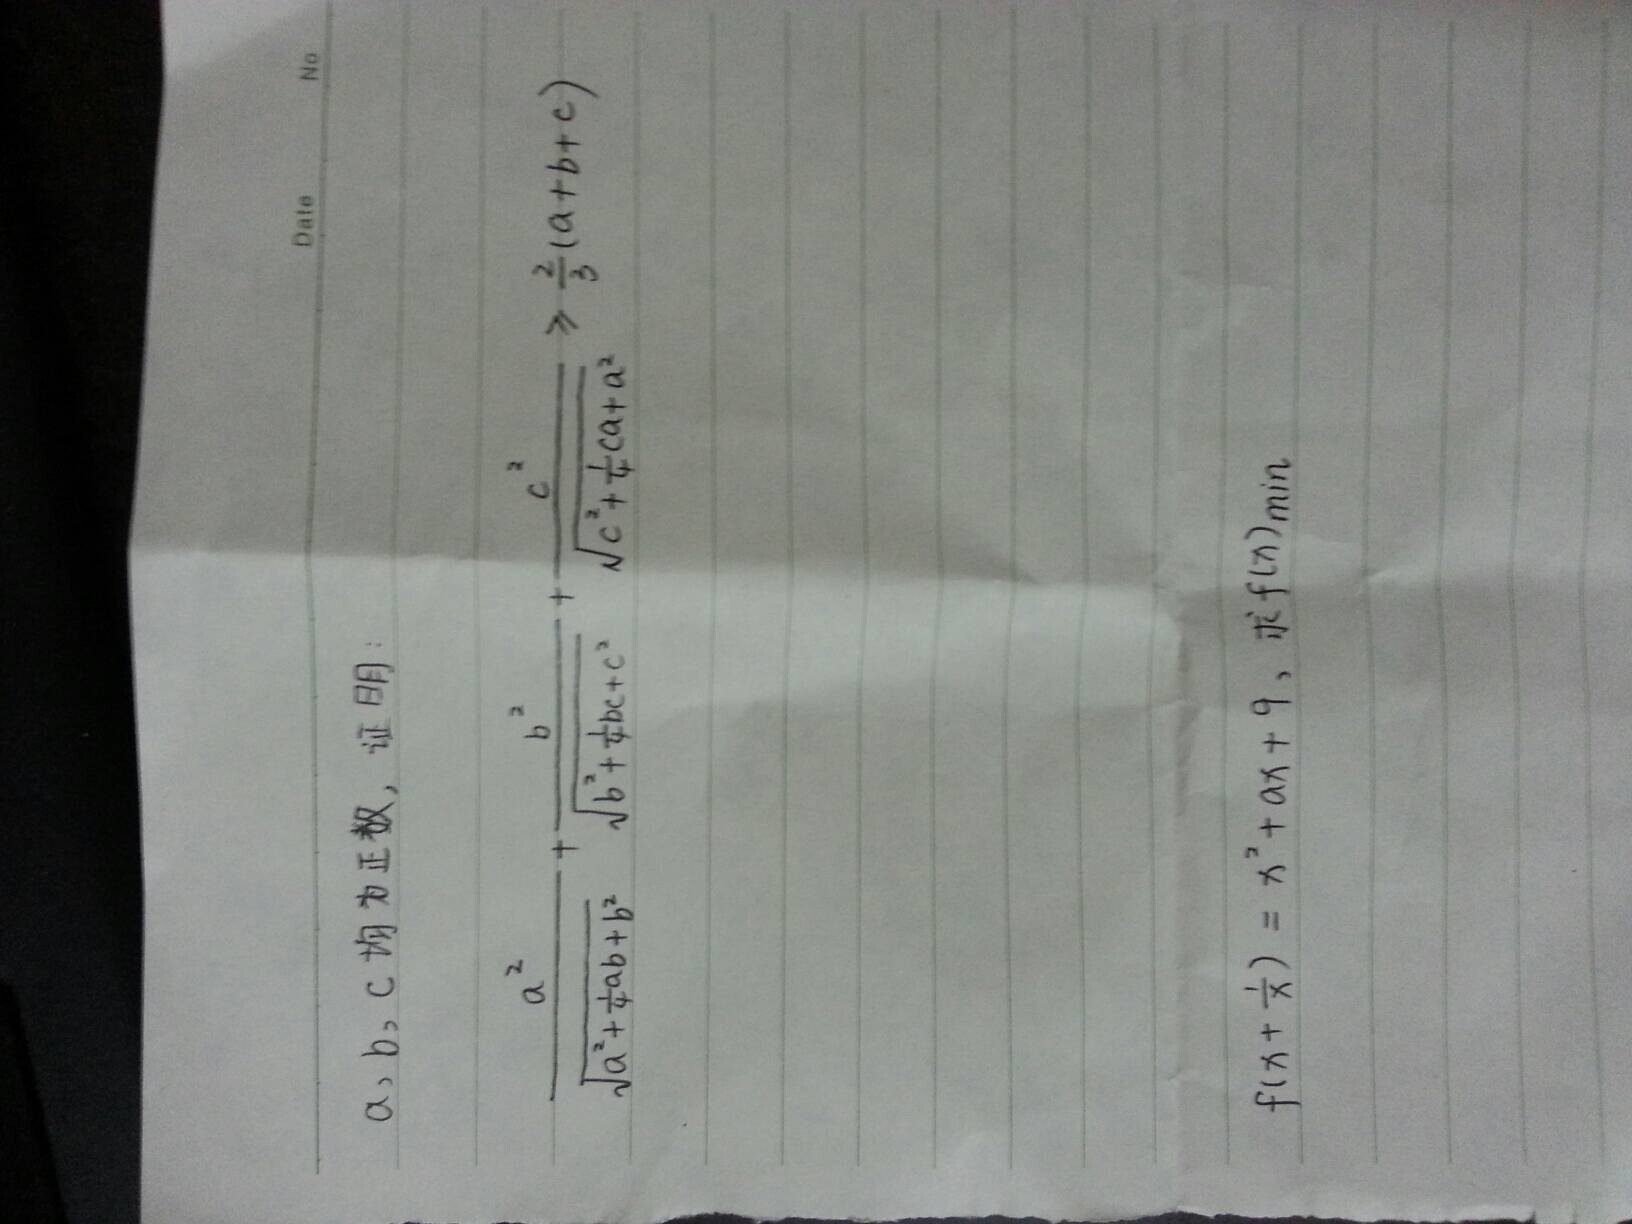 Date No
a、b、c 均为正数，证明：
a²/√(a²+¼ab+b²) + b²/√(b²+¼bc+c²) + c²/√(c²+¼ca+a²) ≥ ⅔(a+b+c)
f(x+1/x) = x²+ax+9，求f(x)min